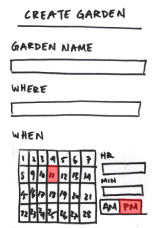 CREATE GARDEN
GARDEN NAME
WHERE
WHEN
1 2 3 4 5 6 7
8 9 10 11 12 13 14
15 16 17 18 19 20 21
22 23 24 25 26 27 28
HR
MIN
AM PM